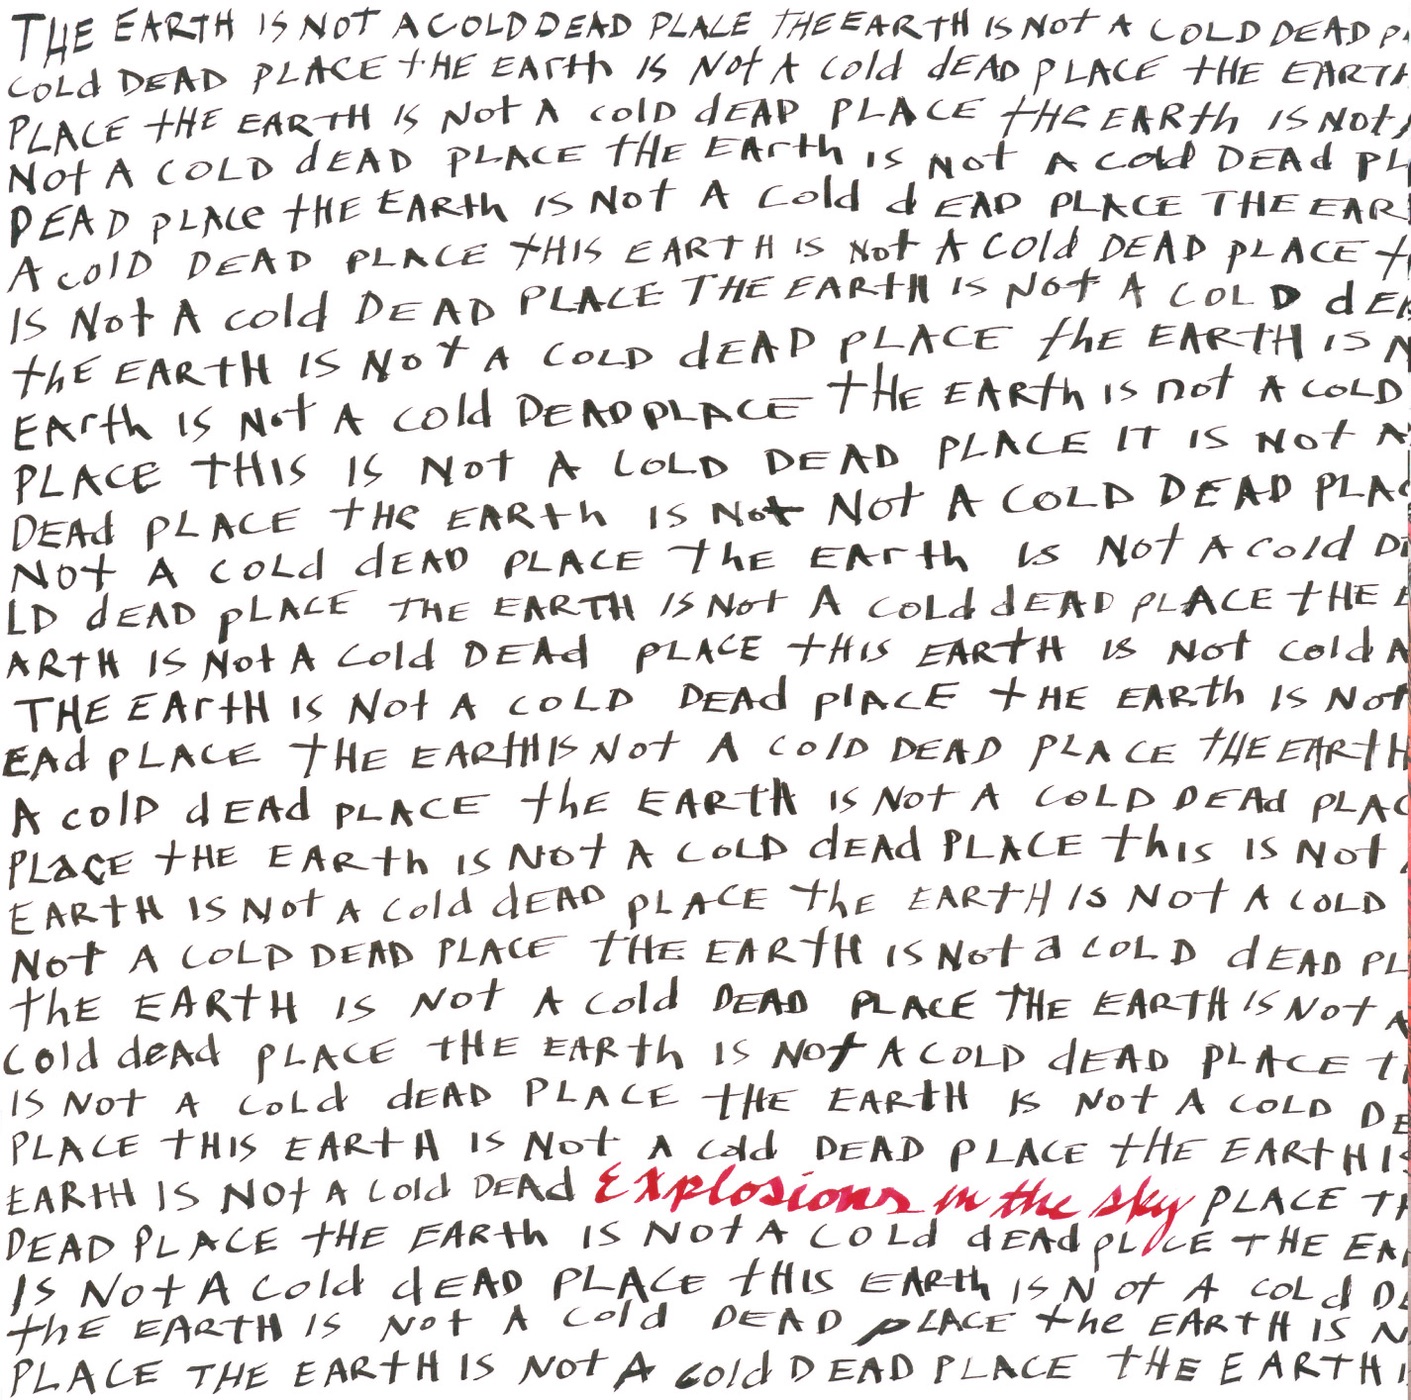 THE EARTH IS NOT A COLD DEAD PLACE THE EARTH IS NOT A COLD DEAD P
COLd DEAD PLACE tHE EArth IS Not A Cold dEAD pLACE tHE EARTH
PLACE tHE EARTH IS Not A colD dEAD PLACE tHe EARth IS NOt
Not A COLD dEAD PLACE tHE EArth IS Not A cold DEAd PL
DEAD pLACe tHE EARth IS Not A Cold d EAD PLACE THE EAR
A colD DEAD PLACE tHIS EARTH IS Not A COld DEAD pLACE t
IS Not A cold DEAD PLACE THE EARtH IS Not A COLD dEA
thE EARtH IS Not A COLD dEAD pLACE thE EARTH IS N
EArth IS Not A Cold DEAD PLACE tHE EARth IS not A COLD
PLACE tHIS IS Not A COLD DEAD PLACE IT IS Not A
DEAd PLACE tHe EARth IS Not Not A COLD DEAD PLAC
Not A COLd dEAD PLACE the EArth IS Not A Cold D
LD dEAD pLACE THE EARTH IS Not A COLd dEAD pLACE tHE E
ARtH IS Not A Cold DEAd PLACE tHIS EARtH IS Not cold A
THE EArtH IS Not A COLD DEAd plACE tHE EARth IS Not
EAd pLACE tHE EARtH IS Not A ColD DEAD PLACE tHE EARtH
A colD dEAd PLACE thE EARtH IS Not A COLD DEAd PLAC
PLaCE tHE EARth IS Not A COLD dEAd PLACE thIs IS Not
EARtH IS Not A Cold dEAD pLACE the EARtH IS Not A COLD
Not A COLD DEAD PLACE tHE EARtH IS Not a COLD dEAD PL
thE EARtH IS Not A Cold DEAD PLACE THE EARTH IS Not A
Cold deAd pLACE tHE EARth IS Not A COLD dEAD PLACE t
IS Not A CoLd dEAD PLACE tHE EARtH IS Not A COLD DE
PLACE tHIS EARtH IS Not A cold DEAD PLACE tHE EARtH IS
EARtH IS Not A Cold DEAd Explosions in the sky PLACE T
DEAD PLACE tHE EARth IS Not A COLd dEAd pLACE tHE EA
IS Not A Cold dEAD PLACE tHIS EARth IS Not A COLd D
thE EARtH IS Not A Cold DEAD pLACE the EARtH IS N
PLACE tHE EARtH IS Not A Cold DEAD PLACE tHE EARTH